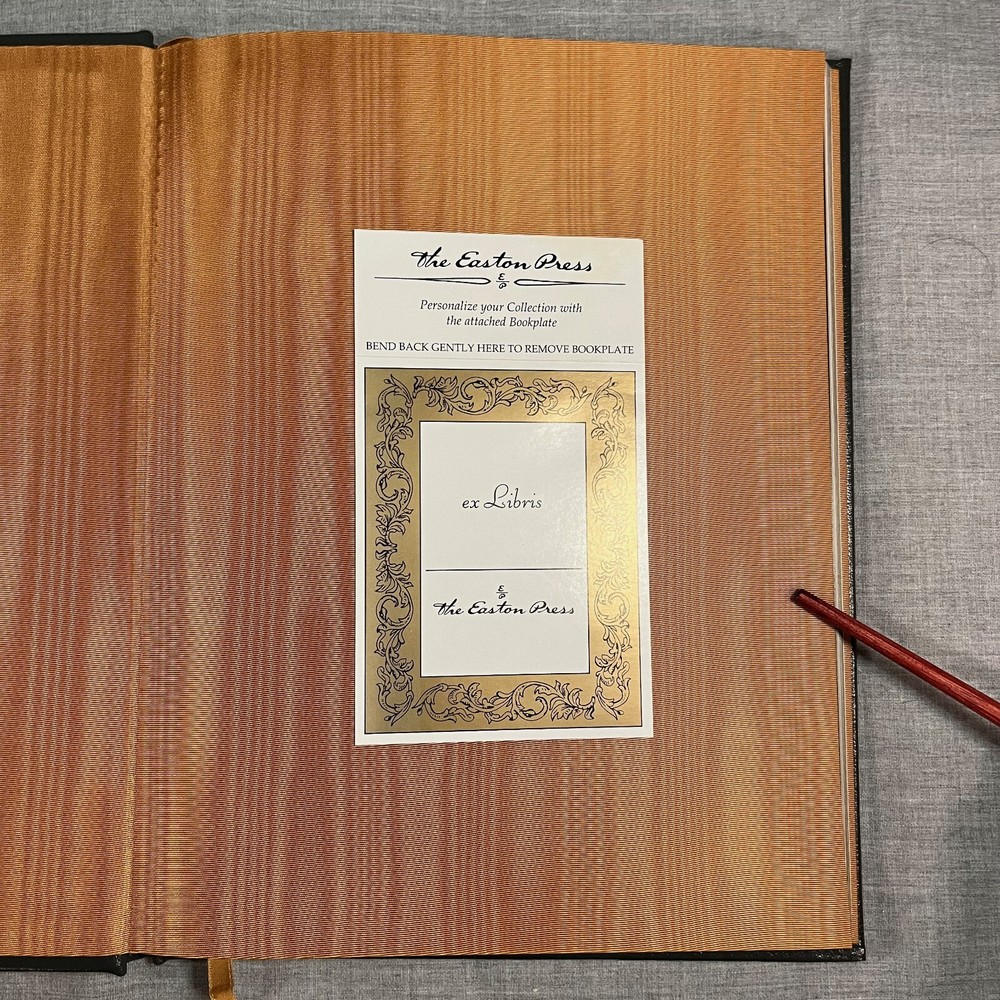 the Easton Press
E
P
Personalize your Collection with
the attached Bookplate
BEND BACK GENTLY HERE TO REMOVE BOOKPLATE
ex Libris
E
P
the Easton Press